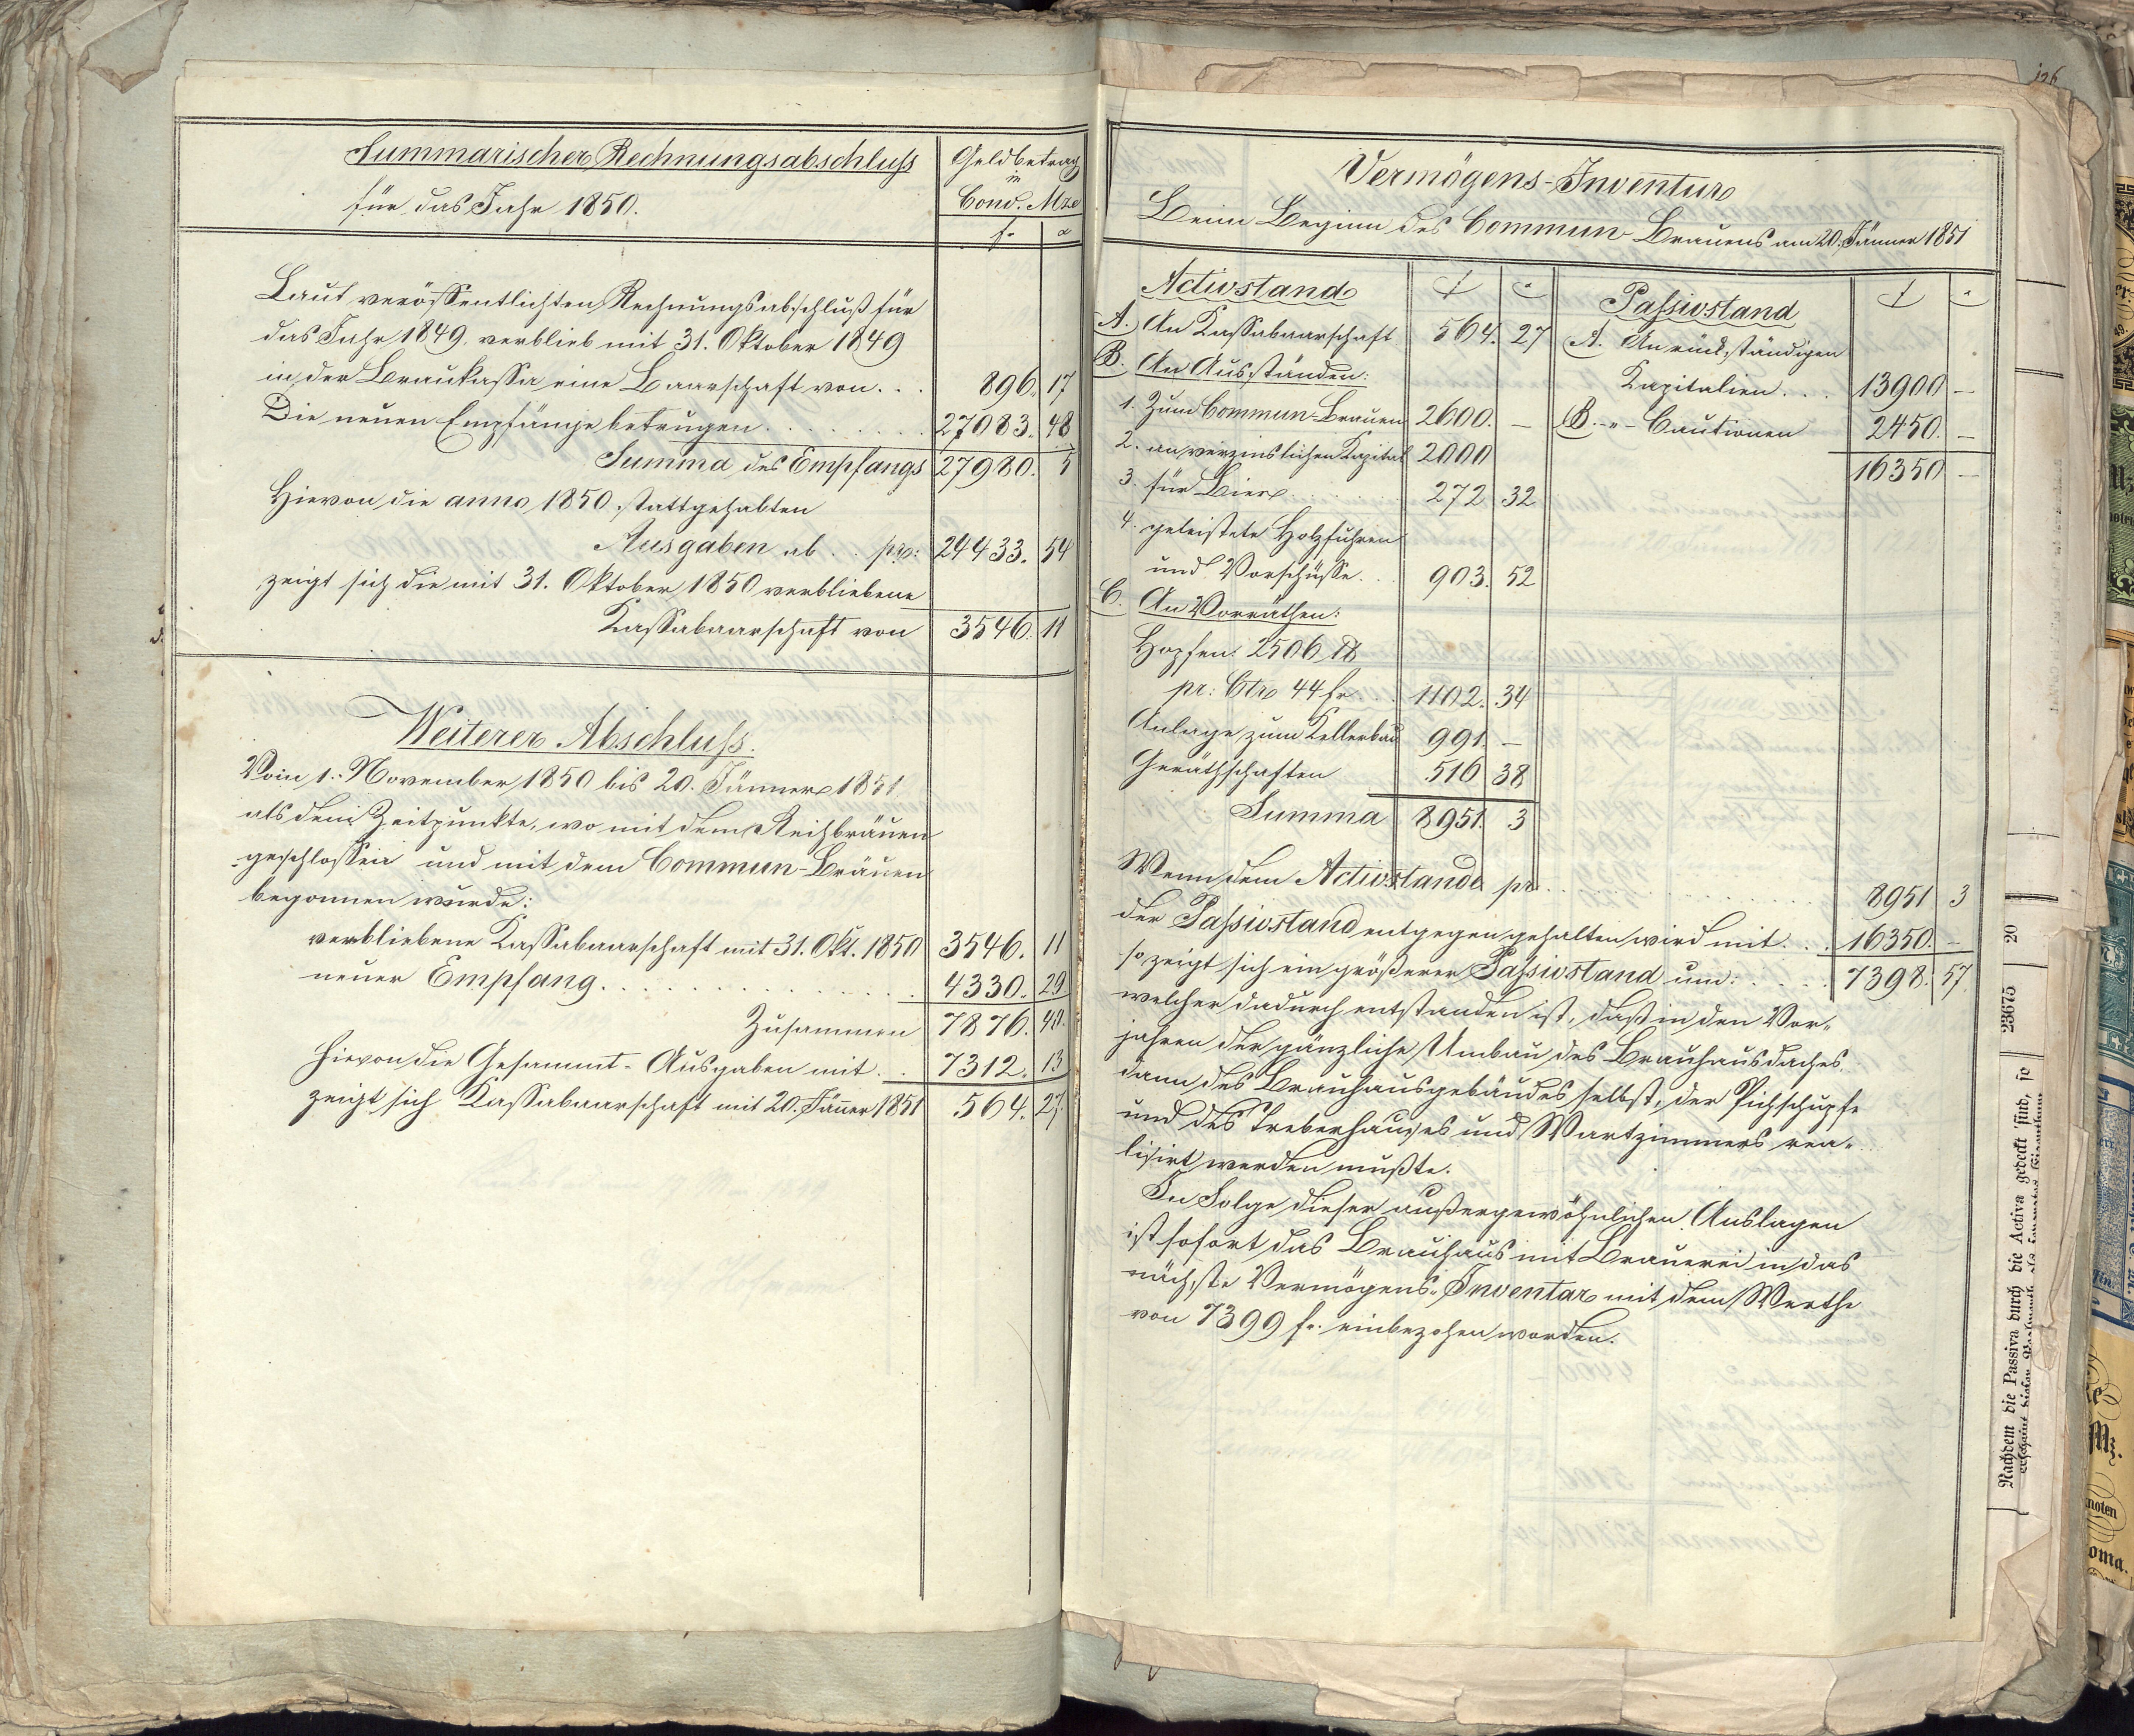 Summarischer Rechnungsabschluß
für das Jahr 1850.
Geldbetrag
in
Conv. Mze
f. x
Laut veröffentlichten Rechnungsabschluß für
das Jahr 1849. verblieb mit 31. Oktober 1849
in der Braukassa eine Baarschaft von . . . 896. 17
Die neuen Empfänge betrugen . . . . . . . . 27083. 48
Summa des Empfangs 27980. 5
Hievon die anno 1850 stattgehabten
Ausgaben ab . . pr: 24433. 54
zeigt sich die mit 31. Oktober 1850 verbliebene
Kassabaarschaft von 3546. 11
Weiterer Abschluß.
Vom 1. November 1850 bis 20. Jänner 1851
als dem Zeitpunkte, wo mit dem Reihbräuen
geschlossen und mit dem Commun-Bräuen
begonnen wurde:
verbliebene Kassabaarschaft mit 31. Okt. 1850 3546. 11
neuer Empfang . . . . . . . . . . . . 4330. 29
Zusammen 7876. 40.
hievon die Gesammt-Ausgaben mit . . 7312. 13
zeigt sich Kassabaarschaft mit 20. Jäner 1851 564. 27.
126
Vermögens-Inventur
Beim Beginn des Commun Brauens am 20. Jänner 1851
Activstand f x
A. An Kassabaarschaft 564. 27
B. An Ausständen:
1. Zum Commun-Brauen 2600. —
2. an verzinslichen Kapital 2000
3. für Bier . . . . . . 272 32
4. geleistete Holzfuhren
und Vorschüsse . . 903. 52
C. An Vorräthen:
Hopfen: 2506 ℔
pr: Ctr 44 fr . . . 1102. 34
Anlage zum Kellerbau 991. —
Geräthschaften 516 38
Summa 8951. 3
Passivstand f x
A. An rückständigen
Kapitalien . . . 13900 —
B. -"- Cautionen 2450. —
16350 —
Wenn dem Activstande pr . . . . . . . . . . 8951 3
der Passivstand entgegen gehalten wird mit . . . 16350. —
so zeigt sich ein größerer Passivstand um: . . . . 7398. 57.
welcher dadurch entstanden ist, daß in den Vor-
jahren der gänzliche Umbau des Brauhausdaches
dann des Brauhausgebäudes selbst, der Pichschupfe
und des Treberhauses und Wartzimmers rea-
lisirt werden mußte.
In Folge dieser außergewöhnlichen Auslagen
ist sofort das Brauhaus mit Brauerei in das
nächste Vermögens-Inventar mit dem Werthe
von 7399 fr. einbezohen worden.
23675 20
Nachdem die Passiva durch die Activa gedeckt sind, so